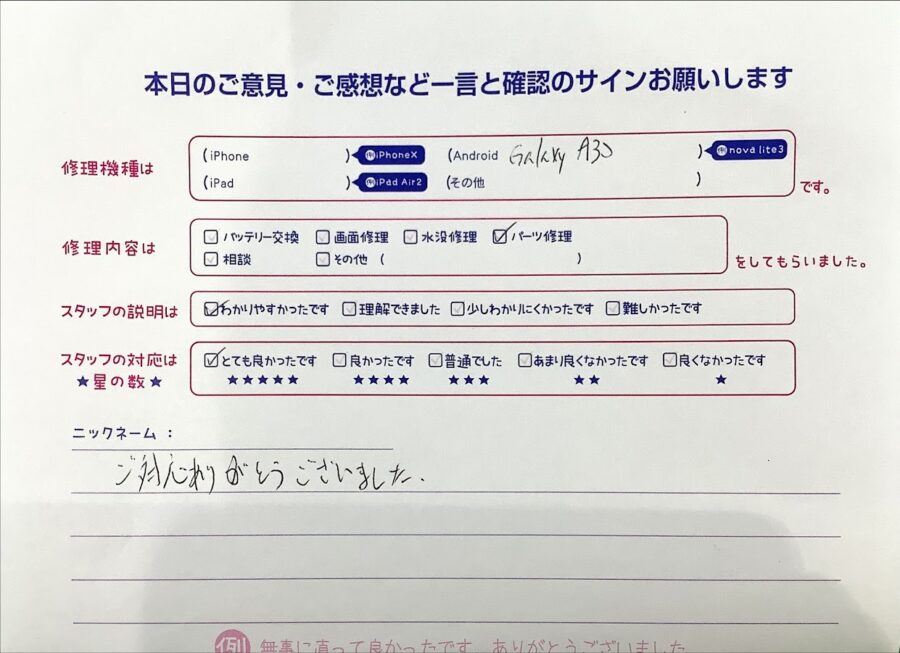 本日のご意見・ご感想など一言と確認のサインお願いします
修理機種は
(iPhone )例iPhoneX (Android Galaxy A30 )例nova lite3
(iPad )例iPad Air2 (その他 )
です。
修理内容は
バッテリー交換 画面修理 水没修理 パーツ修理
相談 その他 ( )
をしてもらいました。
スタッフの説明は
わかりやすかったです 理解できました 少しわかりにくかったです 難しかったです
スタッフの対応は
とても良かったです 良かったです 普通でした あまり良くなかったです 良くなかったです
★星の数★
★★★★★ ★★★★ ★★★ ★★ ★
ニックネーム：
ご対応ありがとうございました.
例 無事に直って良かったです。ありがとうございました